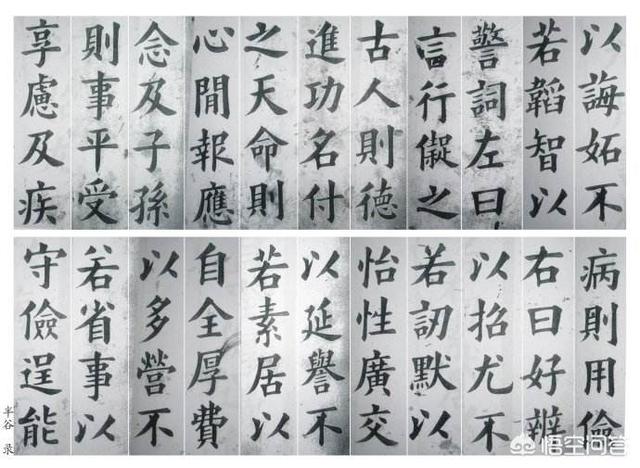 以誨妬不
若韜智以
警詞左曰
言行儗之
古人則德
進功名什
之天命則
心閒報應
念及子孫
則事平受
享慮及疾
病則用儉
右曰好辯
以招尤不
若訒默以
怡性廣交
以延譽不
若素居以
自全厚費
以多營不
若省事以
守儉逞能
半谷 录
悟空问答